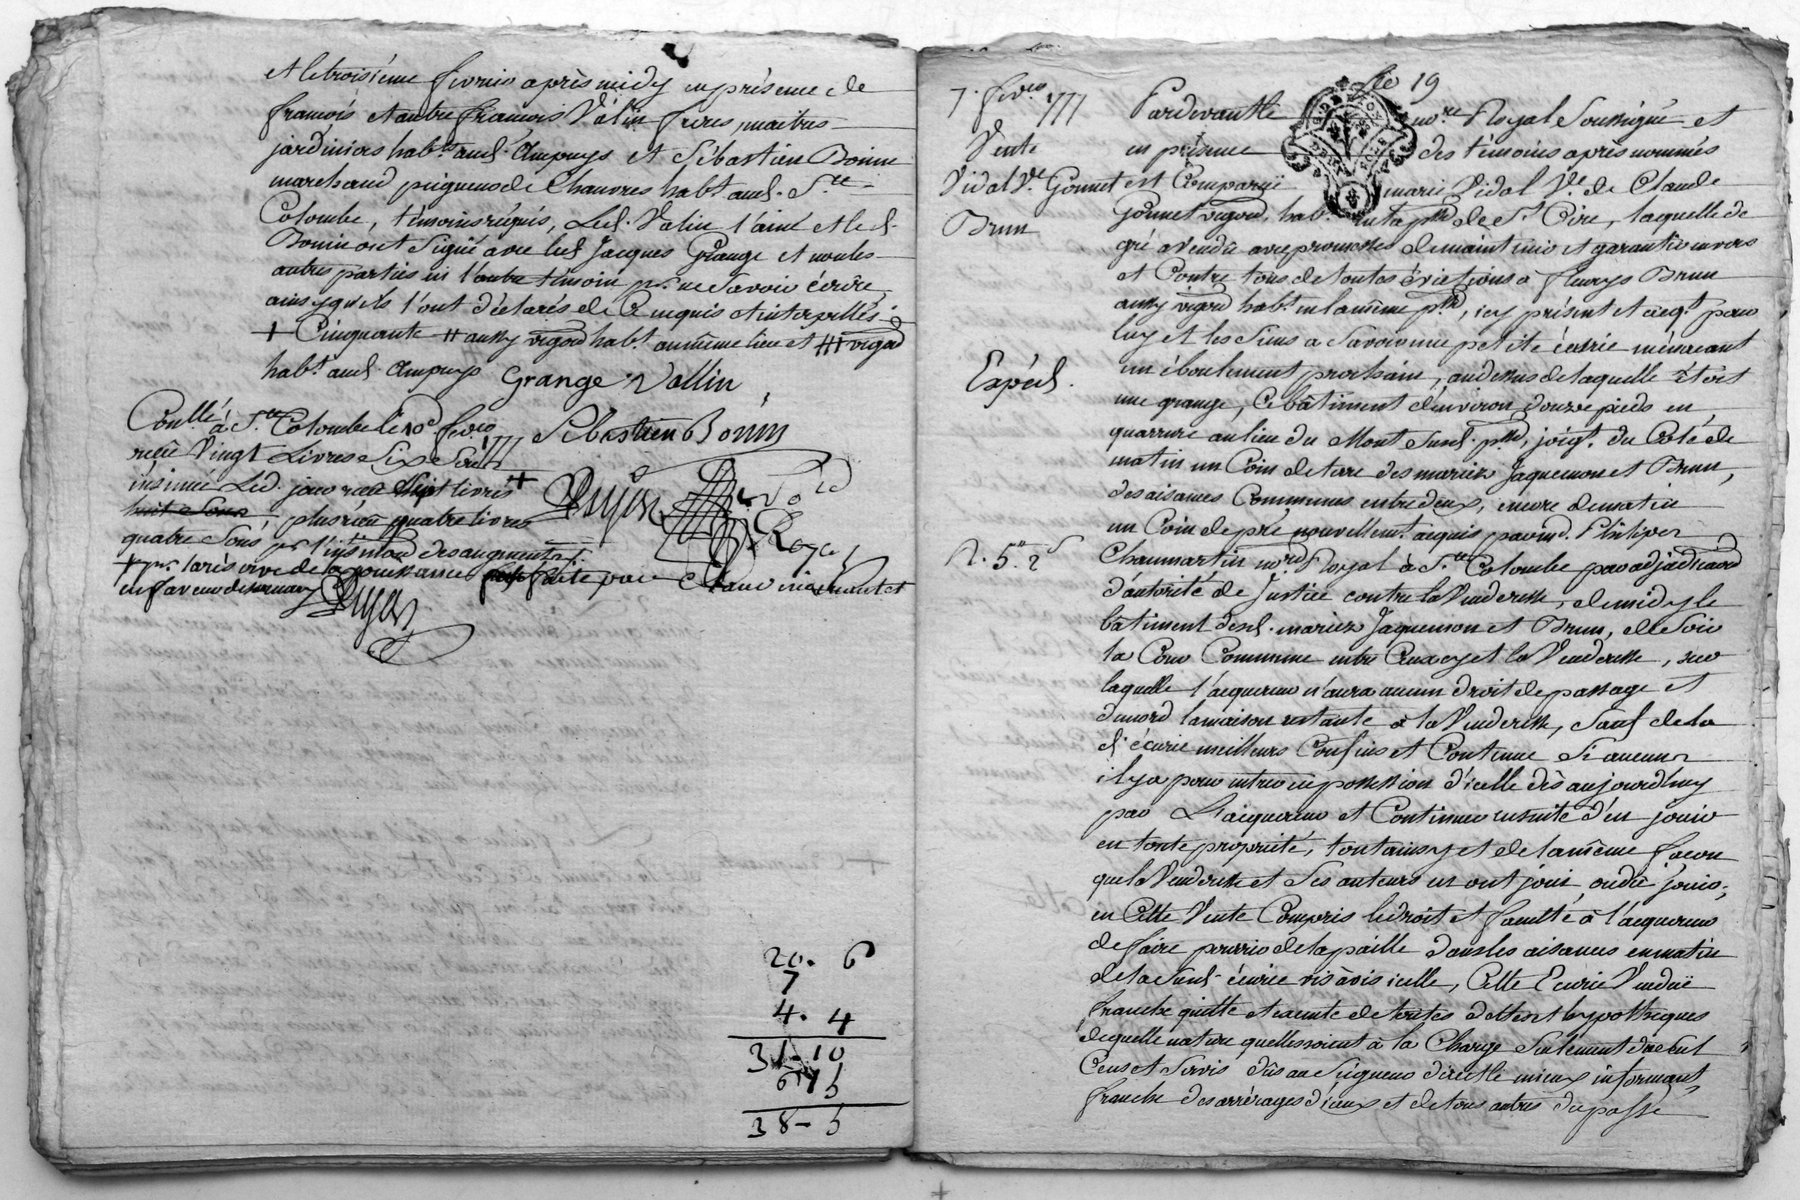 et le troisième fevrier après midy en présence de
françois et autre françois Valin freres maitres
jardiniers habts. aud. Ampuys et Sébastien Bonin
marchand peigneur de Chanvres habt. aud. Ste.
Colombe, témoins réquis, Led. Valin l'ainé et led.
Bonin ont Signé avec led. Jacques Grange et non les
autres parties ni l'autre témoin pr. ne Savoir écrire
ainsy qu'ils l'ont déclarés de Ce enquis et interpellés
+ Cinquante ++ aussy vigon habt. au même lieu et +++ vigon
habt. aud. Ampuys Grange Vallin
Sebastien Bonin
Conllé à Ste. Colombe le 10e. fevrier 1777
reçu Vingt Livres Six Sous
insinué Led. jour reçu Sept livres +
huit Sous plus reçu quatre livres
quatre Sous pr. l'insinuaon des augmentats.
+ pr. la rèserve de la jouissance faite par
en faveur de
Dujas
20. 6
7
4. 4
31-10
6 15
38-5
fo 19
7. fevrier 1777
Vente
Vidal Ve. Gonnet
Brun
Expéd.
R. 5# 2s
Pardevant le nore. Royal Soussigné et
en présence des témoins après nommés
est Comparuë marie Vidal Ve. de Claude
Gonnet vigon, habt. en la psse de St. Cire, laquelle de
gré a vendu avec promesses de maintenir et garantir envers
et Contre tous de toutes évictions à fleurys Brun
aussy vigon habt. en la même psse, icy présent et accept. pour
luy et les Siens a Savoir une petite écurie ménaçant
un éboulement prochain, au dessus de laquelle étoit
une grange, Ce bâtiment d'environ douze pieds en
quarrure au lieu du Mont Susd. psse, joigt. du Coté de
matin un Coin de terre des mariez Jaquemon et Brun,
des aisances Communes entre deux, encore de matin
un Coin de pré nouvellemt. acquis par Philiper
Chaumartin nore Royal à Ste. Colombe par adjudicaon
d'autorité de Justice contre la Venderesse, de midy le
bâtiment desd. mariez Jaquemon et Brun, de Soir
la Cour Commune entre Ceux cy et la Venderesse, sur
laquelle l'acquereur n'aura aucun droit de passage et
du nord la maison restante à la Venderesse, Sauf de la
d. écurie meilleurs Confins et Contenue Si aucuns
il y a pour entrer en possession d'icelle dès aujourd'huy
par L'acquereur et Continuer ensuite d'en jouir
en toute propriété, tout ainsy et de la même façon
que la Venderesse et Ses auteurs en ont joui ou du jouir,
en Cette Vente Compris le droit et faculté à l'acquereur
de faire pourrir de la paille dans les aisances en matin
de la Susd. écurie vis à vis icelle, Cette Ecurie Venduë
franche quitte et exempte de toutes dettes et hypothèques
de quelle nature quelles soient à la Charge Seulement du
Cens et Servis dûs au Seigneur direct le mieux informant,
franche des arrérages d'iceux et de tous autres du passé